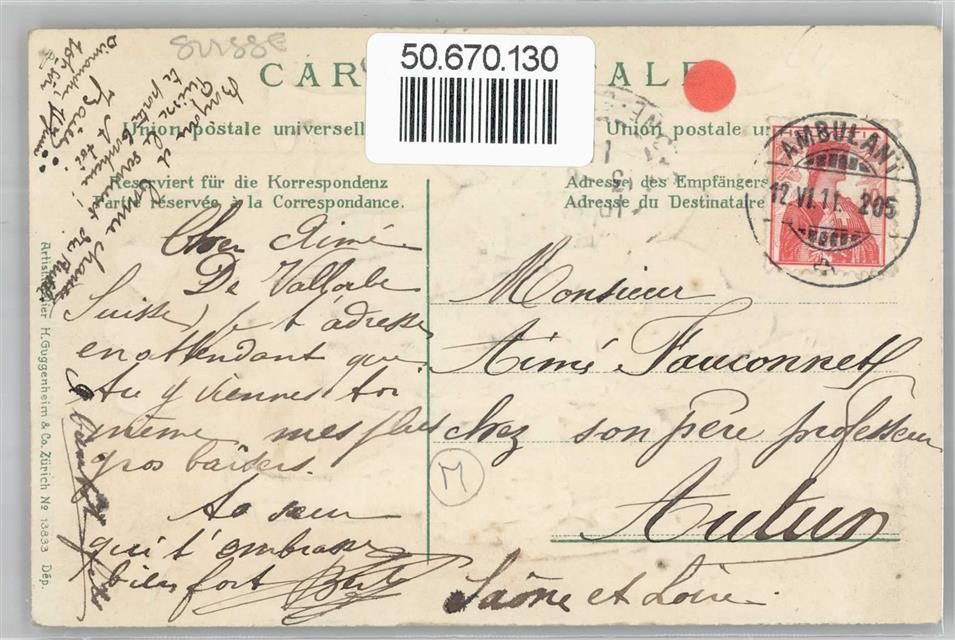 SUISSE
50.670.130
CAR ALE
Union postale universell
Union postale un
Reserviert für die Korrespondenz
Partie réservée à la Correspondance.
Adresse des Empfängers
Adresse du Destinataire
AMBULANT
12.VI.11. 205
Cher Aimé
De Vallorbe
Suisse) je t'adresse
en attendant que
tu y viennes toi
même, mes plus
gros baisers.
Ta sœur
qui t'embrasse
bien fort
Monsieur
Aimé Fauconnet
chez son père professeur
Autun
Saône et Loire.
M
Dimanche
Baisers
A toi
bonne chance
à bientôt
H. Guggenheim & Co. Zürich No 13833 Dép.